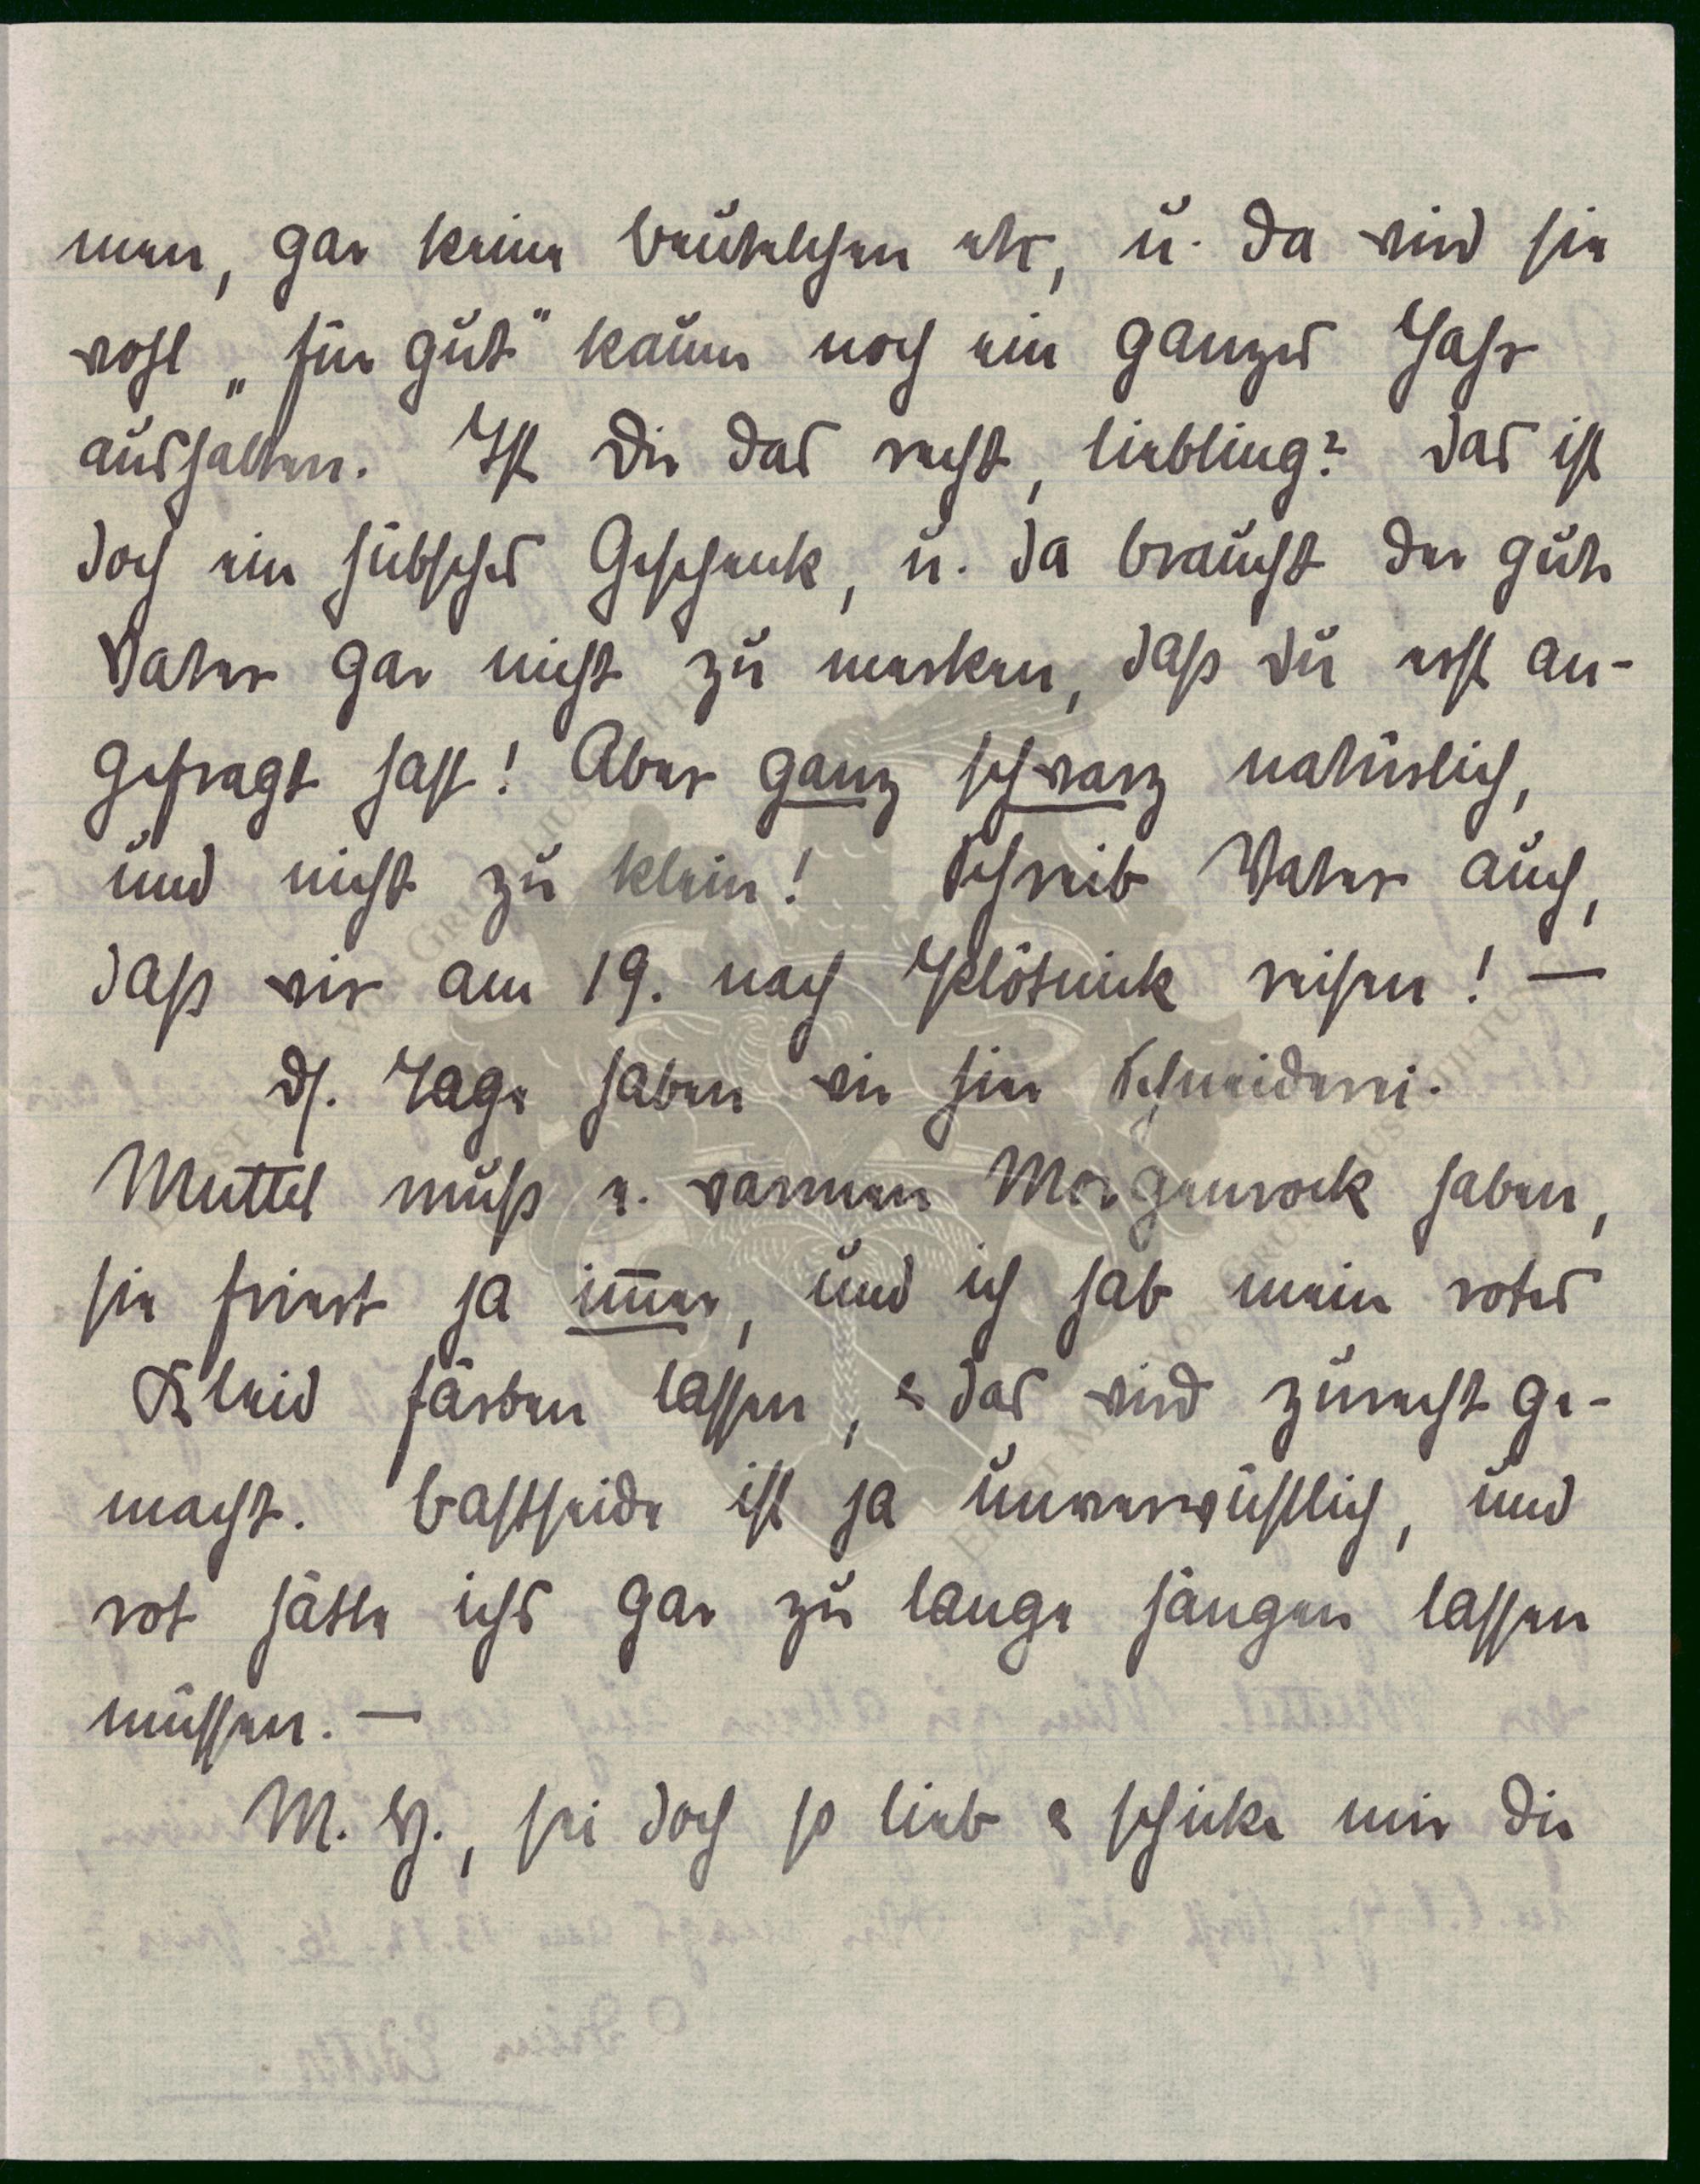 men, gar keine Beutelchen etc, u. da wird sie
wohl „für gut“ kaum noch ein ganzes Jahr
aushalten. Ist Dir das recht, Liebling? Das ist
doch ein hübsches Geschenk, u. da braucht der gute
Vater gar nicht zu merken, daß Du erst an-
gefragt hast! Aber ganz schwarz natürlich,
und nicht zu klein! Schreib Vater auch,
daß wir am 19. nach reisen! —
Ds. Tage haben wir hier Schneiderei.
Muttel muß e. warmen Morgenrock haben,
sie friert ja im̅er, und ich hab mein rotes
Kleid färben lassen, & das wird zurecht ge-
macht. Bastseide ist ja unverwüstlich, und
rot hätte ichs gar zu lange hängen lassen
müssen. —
M. H., sei doch so lieb & schicke mir die
ERNST VON GRUNELIUS-STIFTUNG